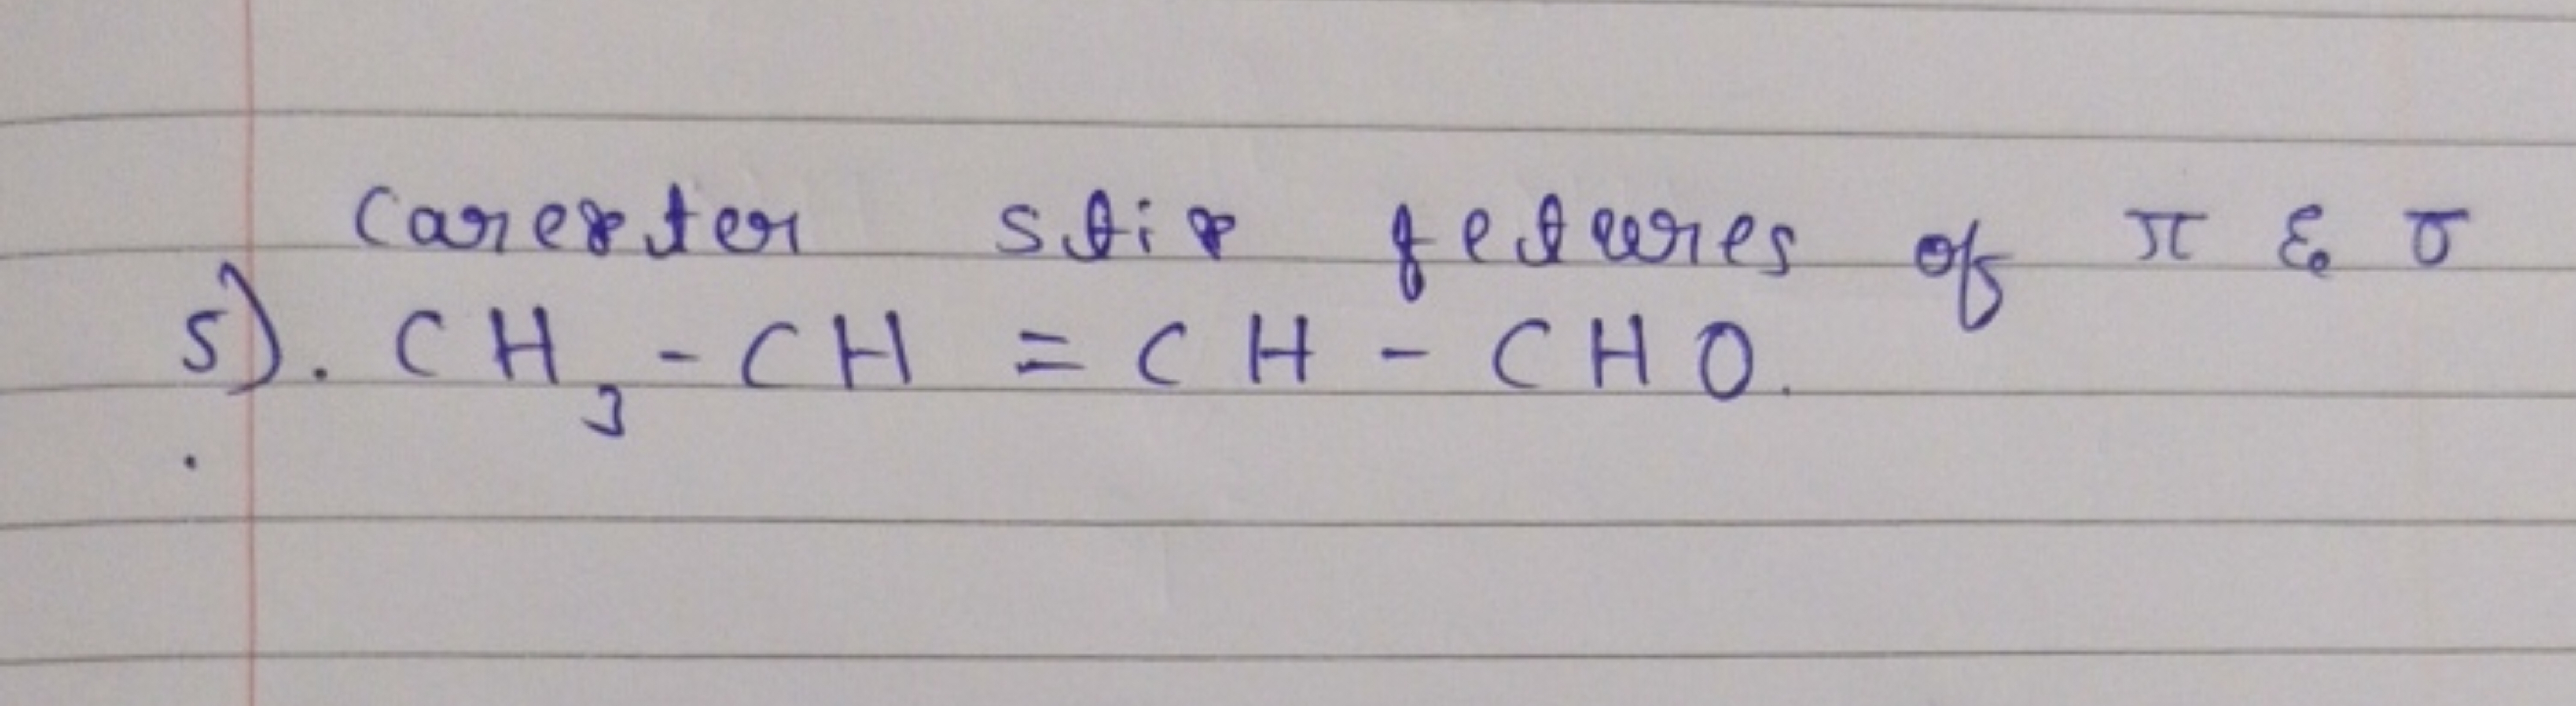 Carexter stix fetures of π & σ
5). CH₃ - CH = CH - CHO.